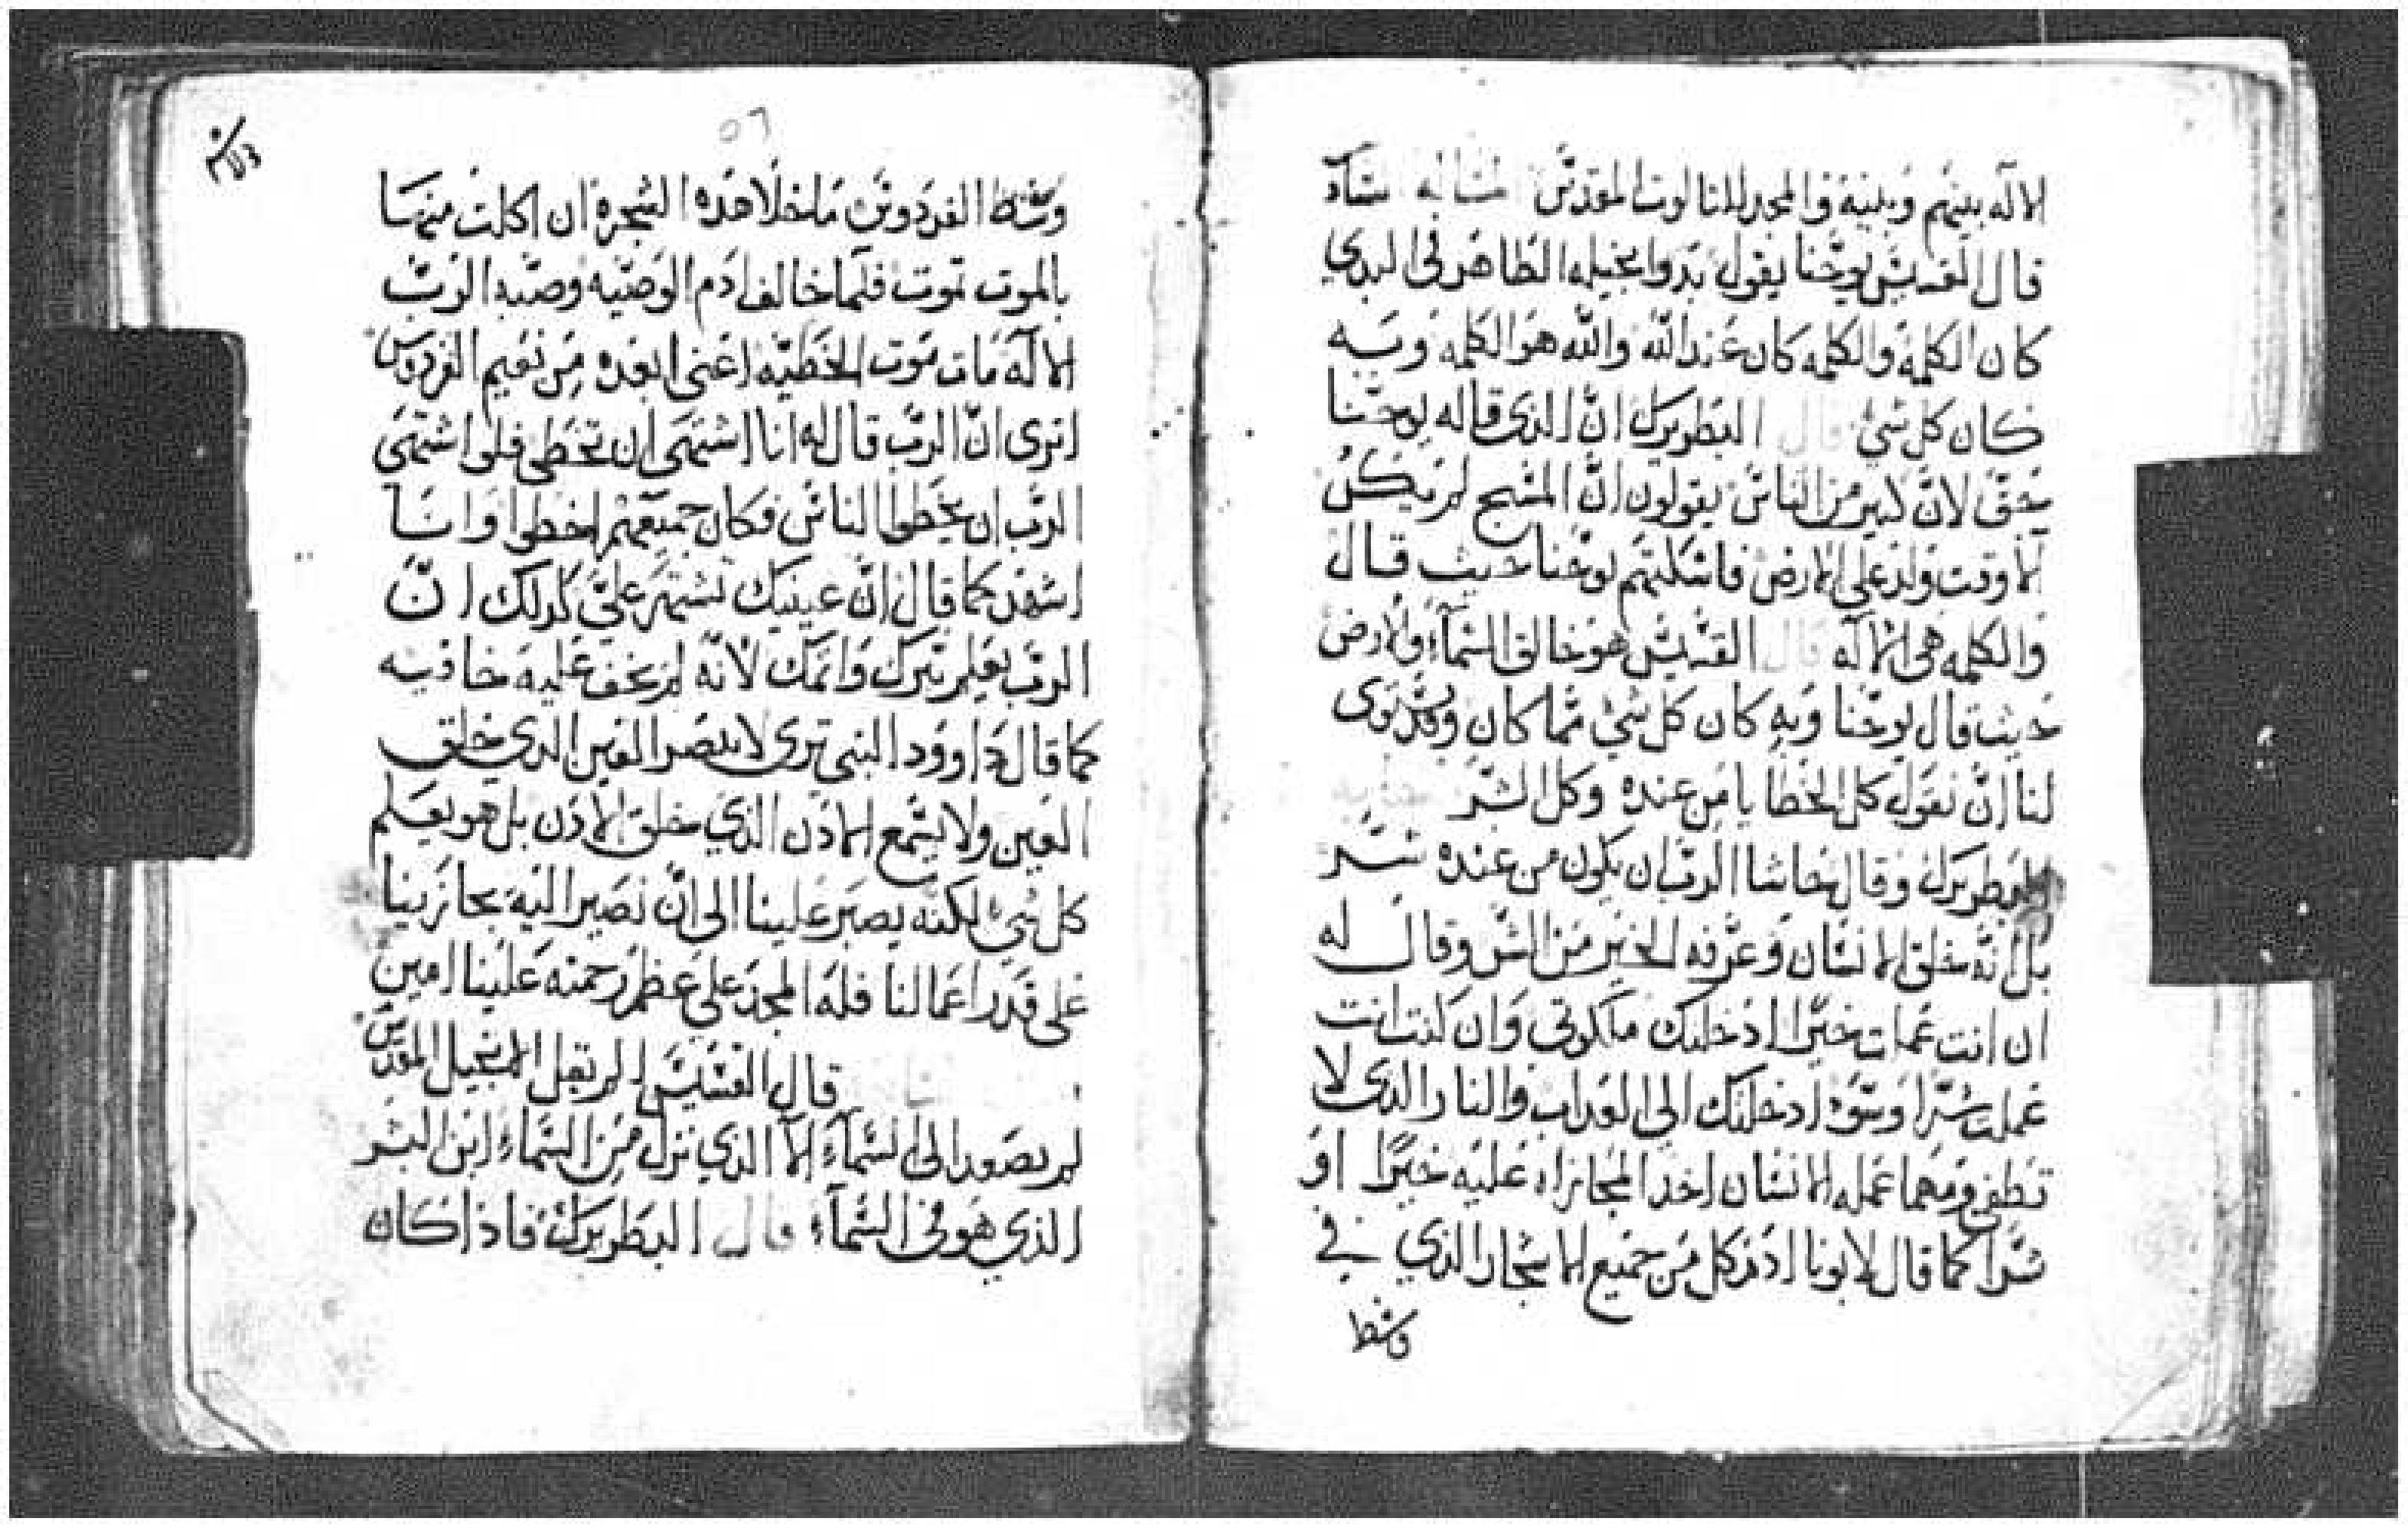 الاله بينهم وبينه والمجد للثالوت المقدس مسا له ستاد
قال القسيس يوحنا يقول بدو انجيله الطاهر في البدي
كان الكلمه والكلمه كان عند الله والله هو الكلمه وبه
كان كل شي قال البطريرك ان الذي قاله يوحنا
بحق لان كتير من الناس يقولون ان المسيح لم يكن
الا وقت ولد على الارض فاسكتهم يوحنا حيث قال
والكلمه هي الاله قال القسيس هو خالق السماء والارض
حيث قال يوحنا وبه كان كل شي مما كان
لنا ان نقول كل الخطايا من عنده وكل الشر
البطريرك وقال حاشا الرب ان يكون من عنده شر
بل انه خلق الانسان وعرفه الخير من الشر وقال له
ان انت عملت خيرا ادخلتك ملكوتي وان كنت انت
عملت شرا وسوء ادخلتك الى العداب والنار الذي لا
تطفى ومهما عمله الانسان اخد المجازاه عليه خيرا او
شرا كما قال لابونا ادم كل من جميع الاشجار الذي في
وسط
٥٦
وسط الفردوس ما خلا هذه الشجره ان اكلت منها
بالموت تموت فلما خالف ادم الوصيه وصية الرب
الاله مات موت الخطيه اعني ابعده من نعيم الفردوس
اترى ان الرب قال له انا اشتهى ان تخطى فلو اشتهى
الرب ان يخطوا الناس فكان جميعهم اخطوا وانا
اشهد كما قال ان عينيك تشتهر علي كدلك ان
الرب يعلم سرك واتمك لانه لم يخف عليه خافيه
كما قال داوود النبي ترى لا ينصر العين الدي خلق
العين ولا يسمع الاذن الذي خلق الاذن بل هو يعلم
كل شي لكنه يصبر علينا الى ان نصير اليه يجازينا
على قدر اعمالنا فله المجد على عظم رحمته علينا امين
قال القسيس الم يقل الانجيل المقدس
لم يصعد الى السماء الا الذي نزل من السماء ابن البشر
الذي هو في السماء قال البطريرك فاذا كان